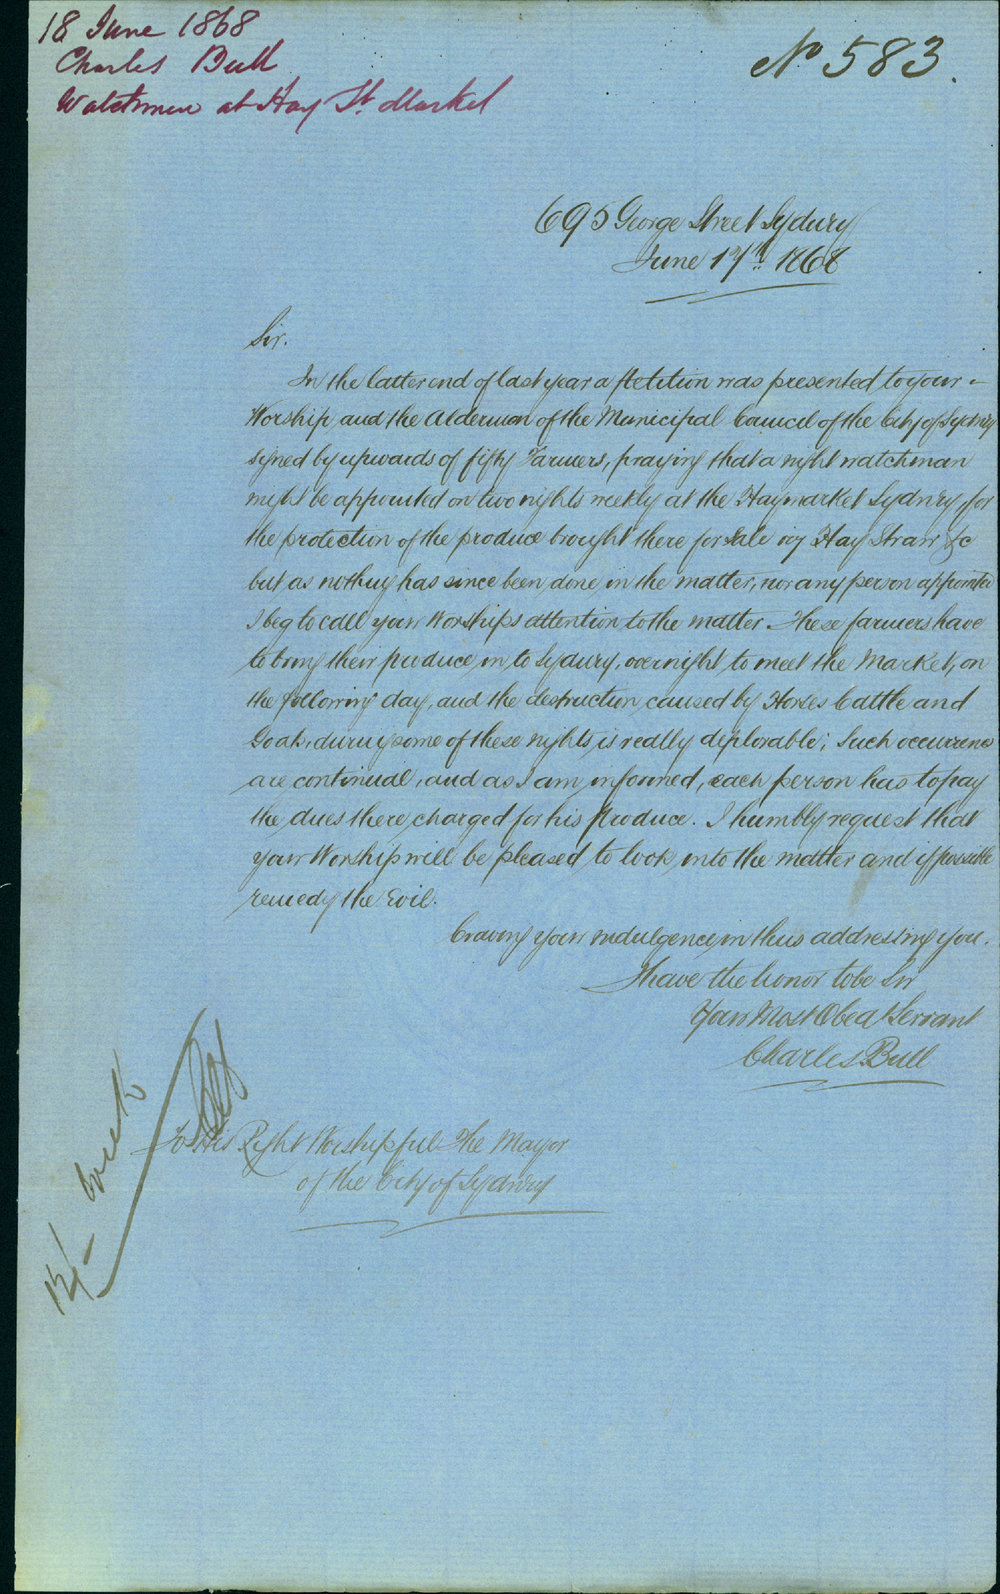 18 June 1868
Charles Bull
Watchman at Hay St. Market
No 583.
695 George Street Sydney
June 17th 1868
Sir.
In the latter end of last year a Petition was presented to your
Worship, and the Alderman of the Municipal Council of the City of Sydney
signed by upwards of fifty Farmers, praying that a night watchman
might be appointed on two nights weekly at the Haymarket Sydney, for
the protection of the produce brought there for sale Hay Straw &c
but as nothing has since been done in the matter, nor any person appointed
I beg to call your Worships attention to the matter. These farmers have
to bring their produce, in to Sydney, overnight, to meet the Market, on
the following day, and the destruction caused by Horses Cattle and
Goats, during some of these nights, is really deplorable; Such occurrences
are continual, and as I am informed, each person has to pay
the dues there charged for his Produce. I humbly request that
your Worship will be pleased to look into the matter and if possible
remedy the Evil.
Craving your indulgence, in thus addressing you.
I have the honor to be Sir
Your Most Obed Servant
Charles Bull
To His Right Worshipful The Mayor
of the City of Sydney
week